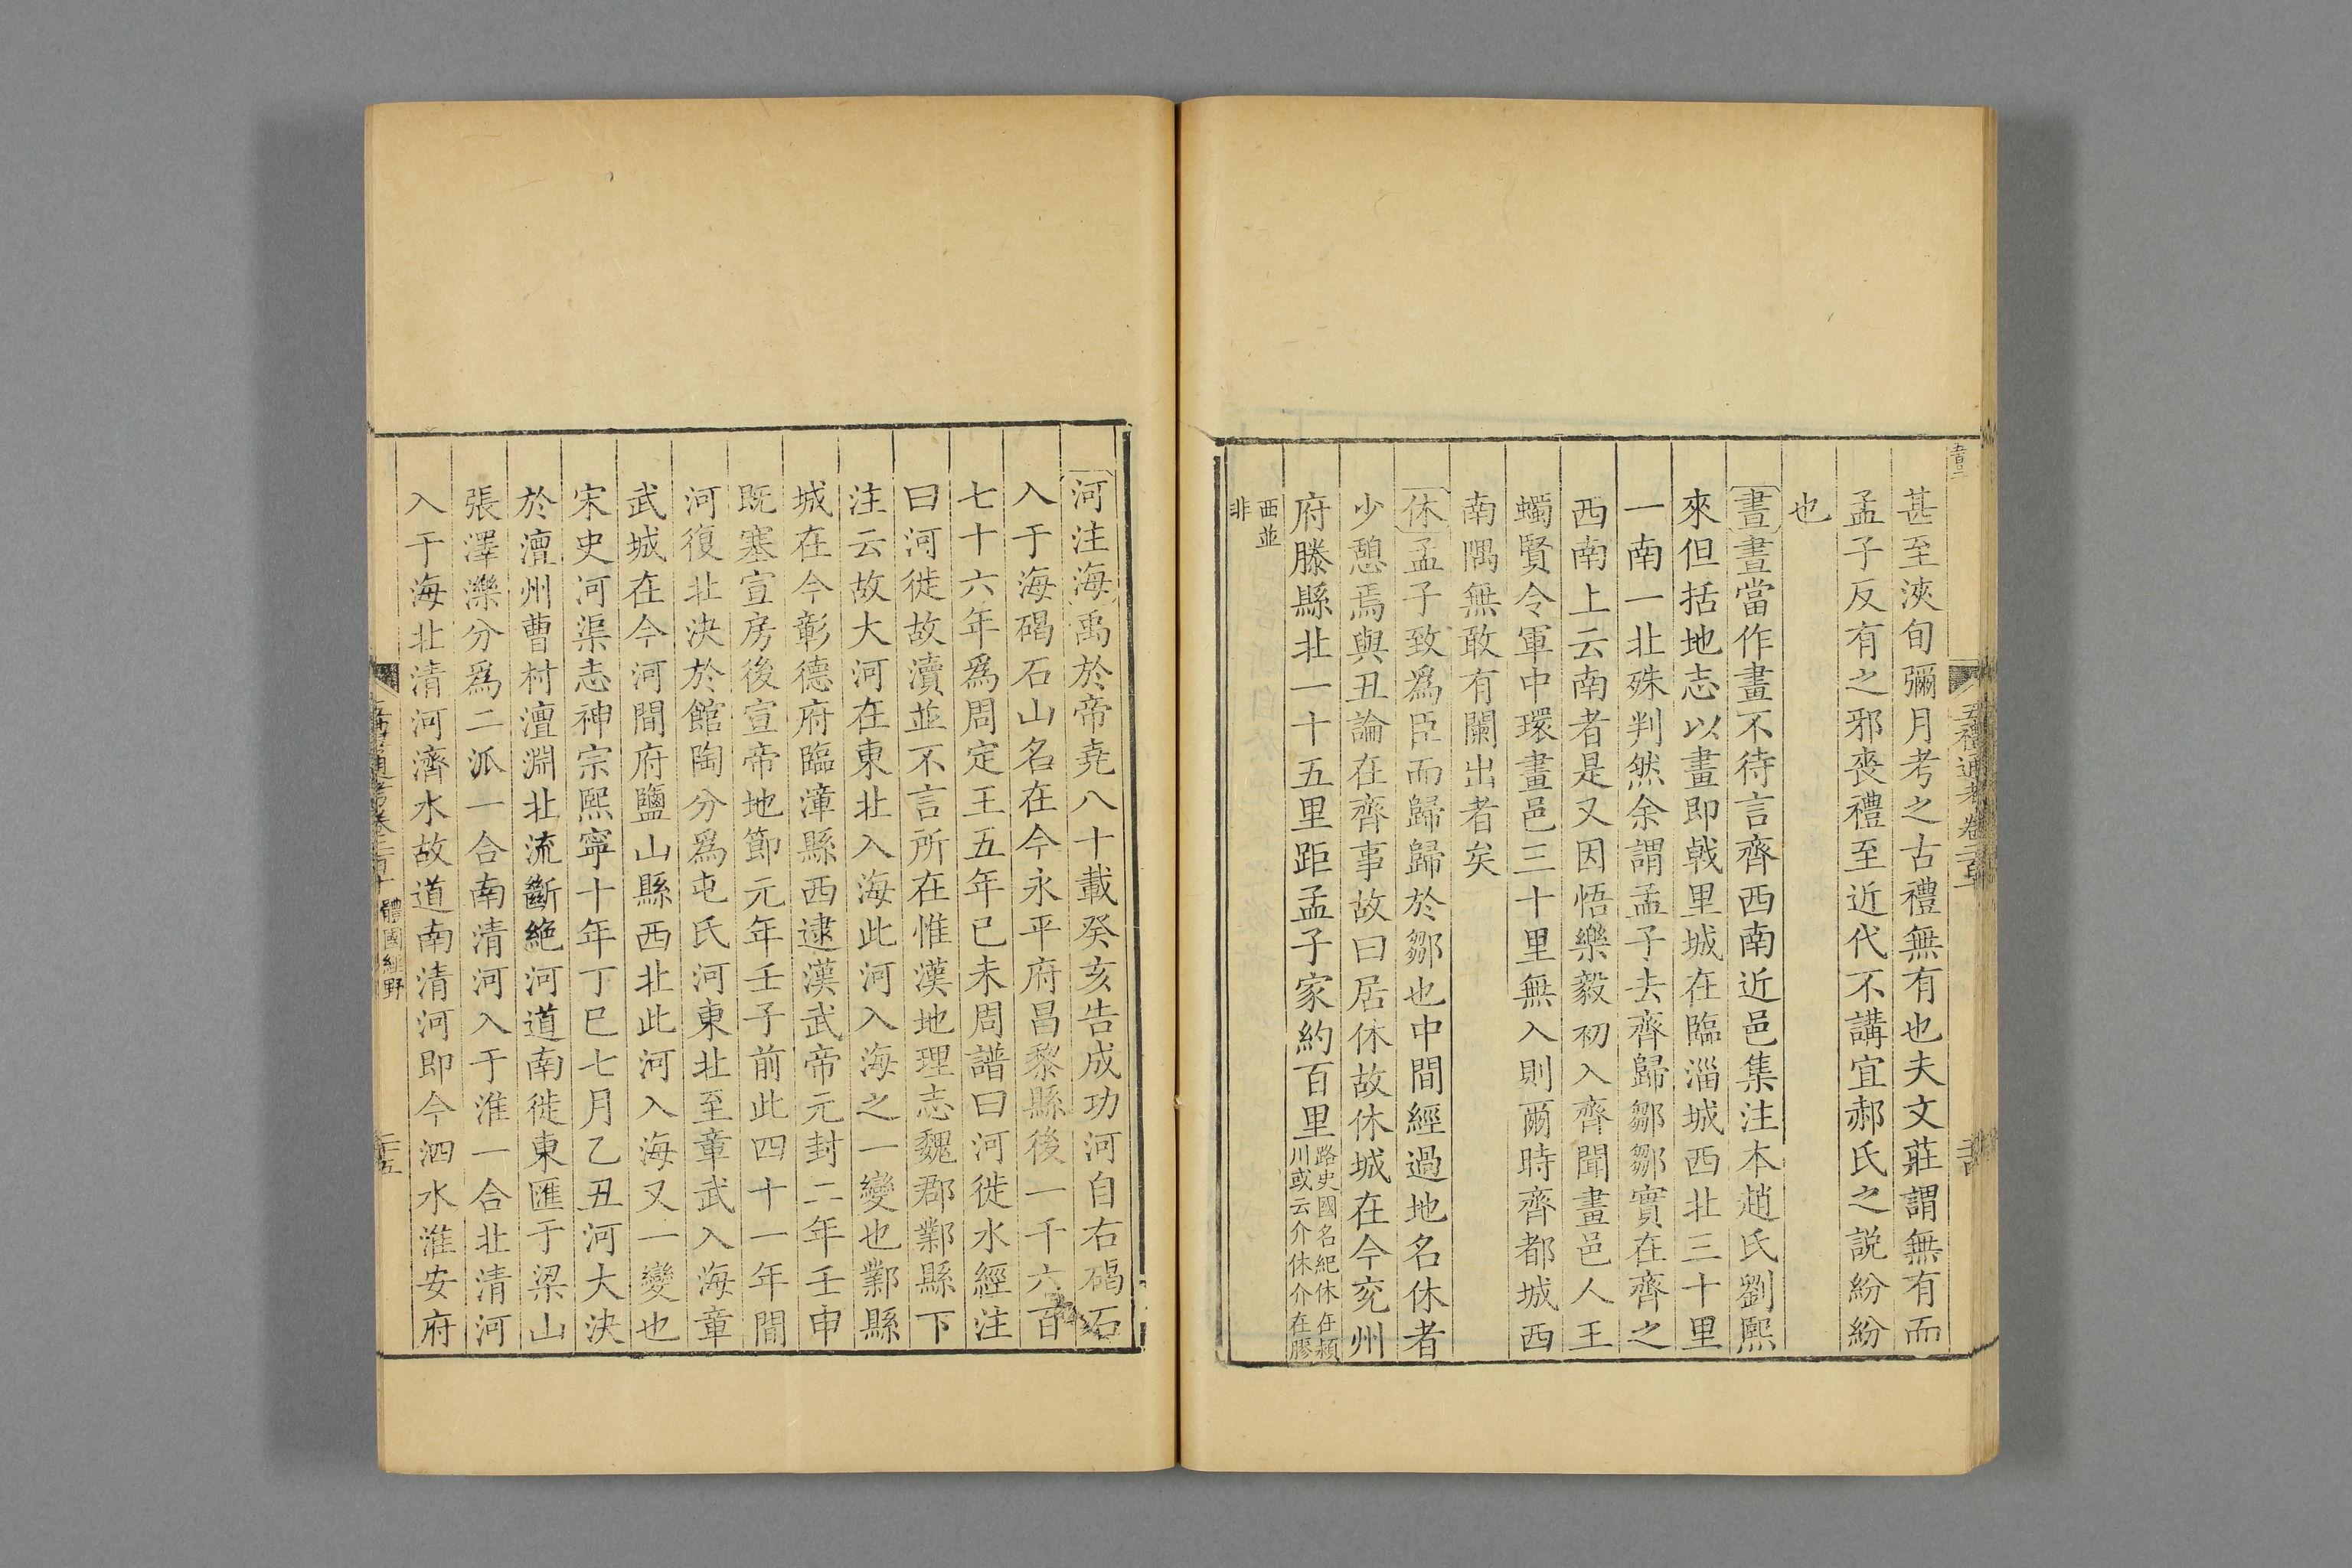 甚至浹旬彌月考之古禮無有也夫文莊謂無有而
孟子反有之邪喪禮至近代不講宜郝氏之說紛紛
也
晝晝當作畫不待言齊西南近邑集注本趙氏劉熙
來但括地志以畫即戟里城在臨淄城西北三十里
一南一北殊判然余謂孟子去齊歸鄒鄒實在齊之
西南上云南者是又因悟樂毅初入齊聞畫邑人王
蠋賢令軍中環畫邑三十里無入則爾時齊都城西
南隅無敢有闌出者矣
休孟子致為臣而歸歸於鄒也中間經過地名休者
少憩焉與丑論在齊事故曰居休故休城在今兗州
府滕縣北一十五里距孟子家約百里路史國名紀休在潁
川或云介休介在膠
西並
非
五禮通考卷二百
河注海禹於帝堯八十載癸亥告成功河自右碣石
入于海碣石山名在今永平府昌黎縣後一千六百
七十六年為周定王五年己未周譜曰河徙水經注
曰河徙故瀆並不言所在惟漢地理志魏郡鄴縣下
注云故大河在東北入海此河入海之一變也鄴縣
城在今彰德府臨漳縣西逮漢武帝元封二年壬申
既塞宣房後宣帝地節元年壬子前此四十一年間
河復北決於館陶分為屯氏河東北至章武入海章
武城在今河間府鹽山縣西北此河入海又一變也
宋史河渠志神宗熙寧十年丁巳七月乙丑河大決
於澶州曹村澶淵北流斷絕河道南徙東匯于梁山
張澤濼分為二派一合南清河入于淮一合北清河
入于海北清河濟水故道南清河即今泗水淮安府
禮通考卷二百十 體國經野
二五